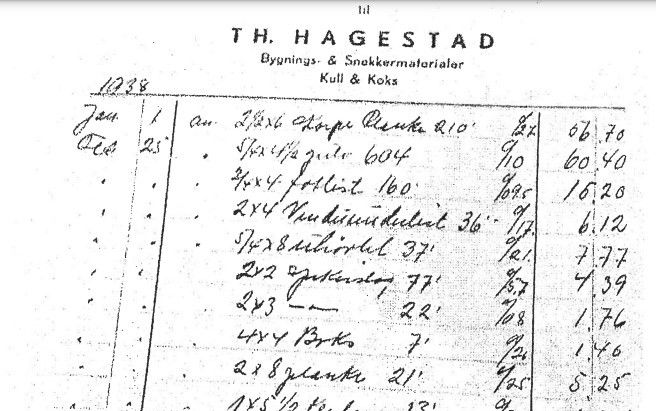 til
TH. HAGESTAD
Bygnings- & Snekkermaterialer
Kull & Koks
1938
Jan 1 an 2½x6 Planke 210' à/27 56.70
Feb 25 " 5/4x4½ gulv 604 à/10 60.40
" " " 3/4x4 fotlist 160' à/095 15.20
" " " 2x4 36' à/17 6.12
" " " 5/4x8 37' à/21 7.77
" " " 2x2 77' à/5,7 4.39
" " " 2x3 —"— 22' à/08 1.76
" " " 4x4 Boks 7' à/20 1.40
" " " 2x8 planke 21' à/25 5.25
1x5½ 13' à/